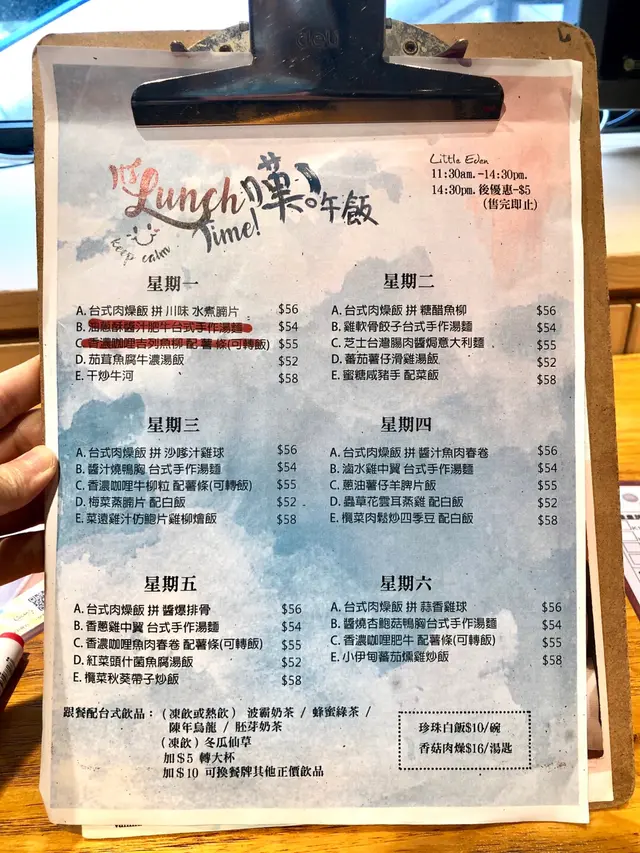 deli
Lunch Time! 嘆。午飯
keep calm
Little Eden
11:30am.-14:30pm.
14:30pm. 後優惠-$5
(售完即止)
星期一
A. 台式肉燥飯 拼 川味 水煮腩片 $56
B. 油蔥酥醬汁肥牛台式手作湯麵 $54
C. 香濃咖哩吉列魚柳 配 薯 條(可轉飯) $55
D. 茄茸魚腐牛濃湯飯 $52
E. 干炒牛河 $58
星期二
A. 台式肉燥飯 拼 糖醋魚柳 $56
B. 雞軟骨餃子台式手作湯麵 $54
C. 芝士台灣腸肉醬焗意大利麵 $55
D. 蕃茄薯仔滑雞湯飯 $52
E. 蜜糖咸豬手 配菜飯 $58
星期三
A. 台式肉燥飯 拼 沙嗲汁雞球 $56
B. 醬汁燒鴨胸 台式手作湯麵 $54
C. 香濃咖哩牛柳粒 配薯條(可轉飯) $55
D. 梅菜蒸腩片 配白飯 $52
E. 菜遠雞汁仿鮑片雞柳燴飯 $58
星期四
A. 台式肉燥飯 拼 醬汁魚肉春卷 $56
B. 滷水雞中翼 台式手作湯麵 $54
C. 蔥油薯仔羊脾片飯 $55
D. 蟲草花雲耳蒸雞 配白飯 $52
E. 欖菜肉鬆炒四季豆 配白飯 $58
星期五
A. 台式肉燥飯 拼 醬爆排骨 $56
B. 香蔥雞中翼 台式手作湯麵 $54
C. 香濃咖哩魚肉春卷 配薯條(可轉飯) $55
D. 紅菜頭什菌魚腐湯飯 $52
E. 欖菜秋葵帶子炒飯 $58
星期六
A. 台式肉燥飯 拼 蒜香雞球 $56
B. 醬燒杏鮑菇鴨胸台式手作湯麵 $54
C. 香濃咖哩肥牛 配薯條(可轉飯) $55
E. 小伊甸蕃茄燻雞炒飯 $58
跟餐配台式飲品：（凍飲或熱飲） 波霸奶茶 / 蜂蜜綠茶 /
陳年烏龍 / 胚芽奶茶
（凍飲）冬瓜仙草
加＄5 轉大杯
加＄10 可換餐牌其他正價飲品
珍珠白飯$10/碗
香菇肉燥$16/湯匙